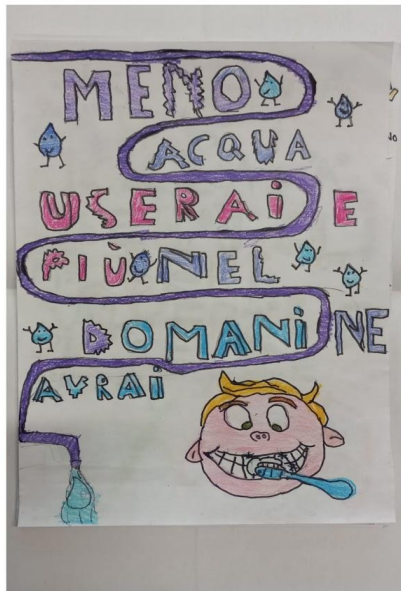 MENO
ACQUA
USERAI E
PIÙ NEL
DOMANI NE
AVRAI